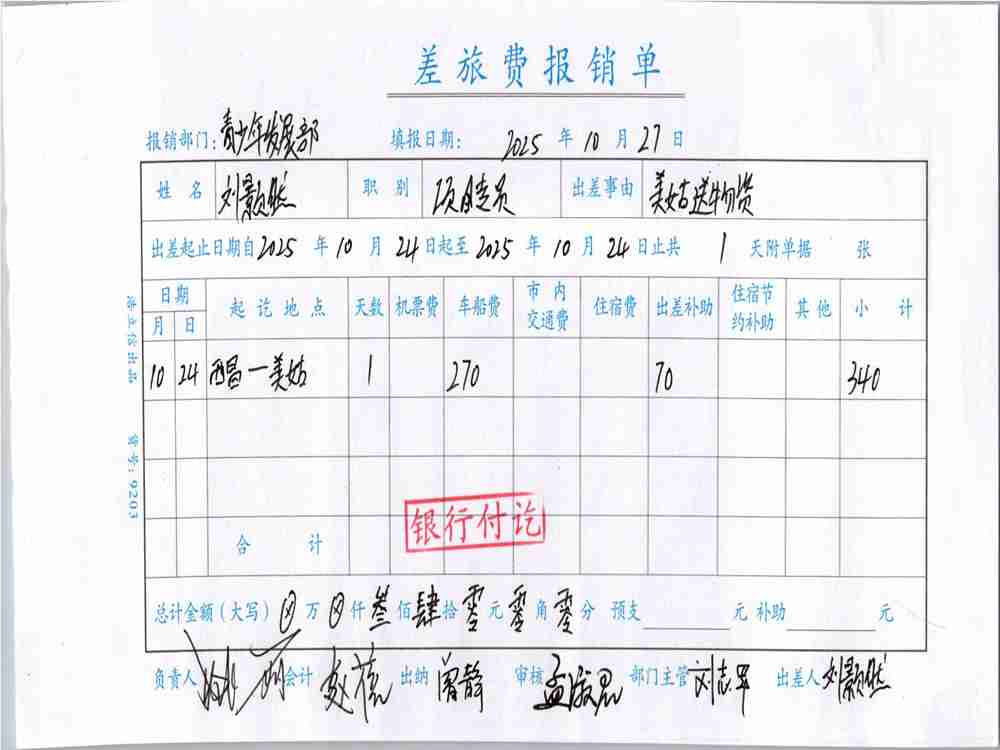 差旅费报销单
报销部门：青少年发展部 填报日期： 2025 年 10 月 27 日
姓 名 刘颢然 职 别 项目专员 出差事由 美姑送物资
出差起止日期自 2025 年 10 月 24 日起至 2025 年 10 月 24 日止共 1 天附单据 张
日期 起讫地点 天数 机票费 车船费 市内交通费 住宿费 出差补助 住宿节约补助 其他 小 计
月 日
10 24 西昌—美姑 1 270 70 340
银行付讫
合 计
总计金额（大写）⊗ 万 ⊗ 仟 叁 佰 肆 拾 零 元 零 角 零 分 预支 元 补助 元
负责人 会计 出纳 曾静 审核 部门主管 刘志军 出差人 刘颢然
货号：9203